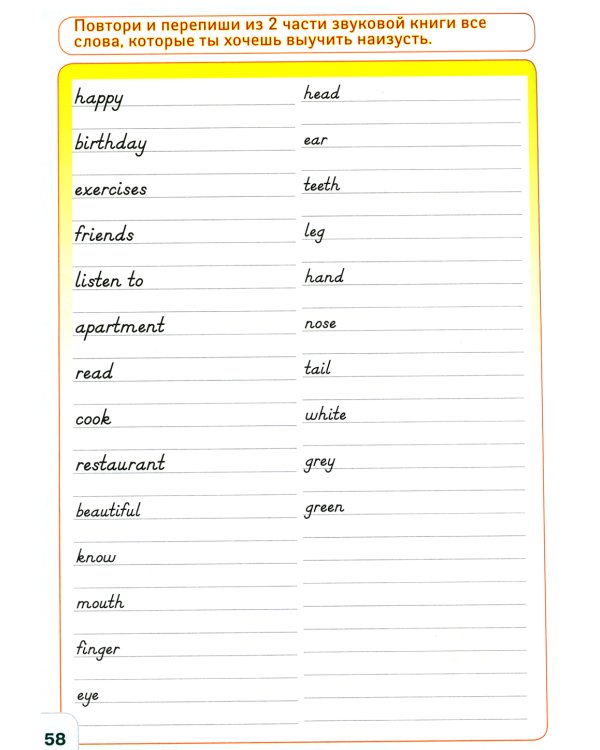 Повтори и перепиши из 2 части звуковой книги все
слова, которые ты хочешь выучить наизусть.
happy
birthday
exercises
friends
listen to
apartment
read
cook
restaurant
beautiful
know
mouth
finger
eye
head
ear
teeth
leg
hand
nose
tail
white
grey
green
58